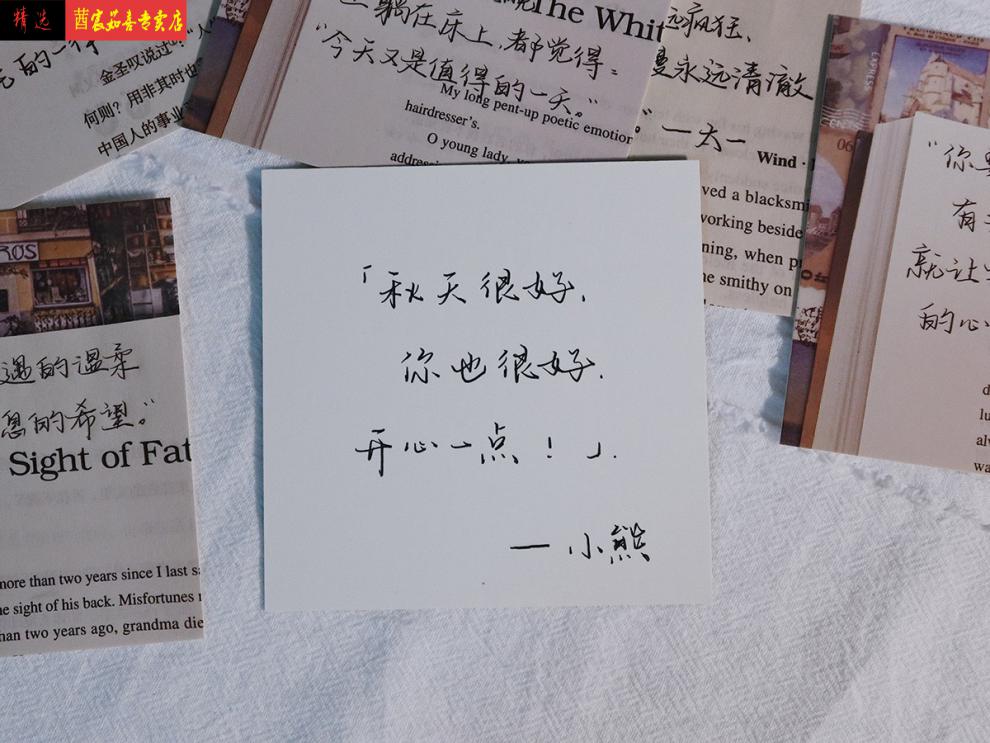 精选 茜宸茹喜专卖店
的一
金圣叹说过："人
何则？用非其时也
中国人的事业
躺在床上，都觉得：
"今天又是值得的一天。"
The Whit
My long pent-up poetic emotion
hairdresser's.
O young lady,
疯狂、
永远清澈
。"一大一
Wind ·
ved a blacksmi
working beside
ning, when p
e smithy on
EXPRES
06
"你
有
就让
的心
ROS
遇的温柔
息的希望。"
Sight of Fat
more than two years since I last s
e sight of his back. Misfortunes
han two years ago, grandma die
「秋天很好，
你也很好，
开心一点！」.
— 小熊